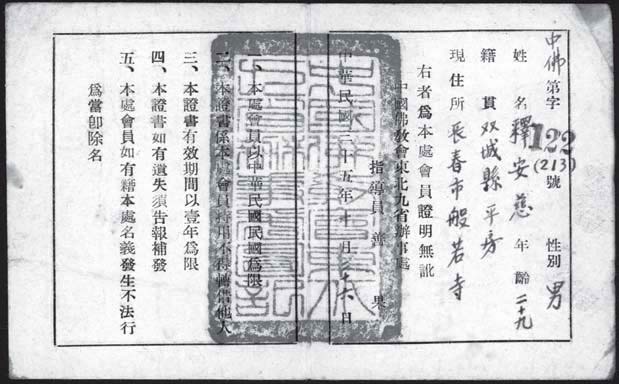 中佛第字122號
(213)
性別 男
姓名 釋安慈 年齡 二十九
籍貫 双城縣平房
現住所 長春市般若寺
右者為本處會員證明無訛
中國佛教會東北九省辦事處
指導員 善果
中華民國三十五年十月 日
一、本處會員以中華民國民國為限
二、本證書係本處會員持用不得轉借他人
三、本證書有效期間以壹年為限
四、本證書如有遺失須告報補發
五、本處會員如有藉本處名義發生不法行
為當卽除名